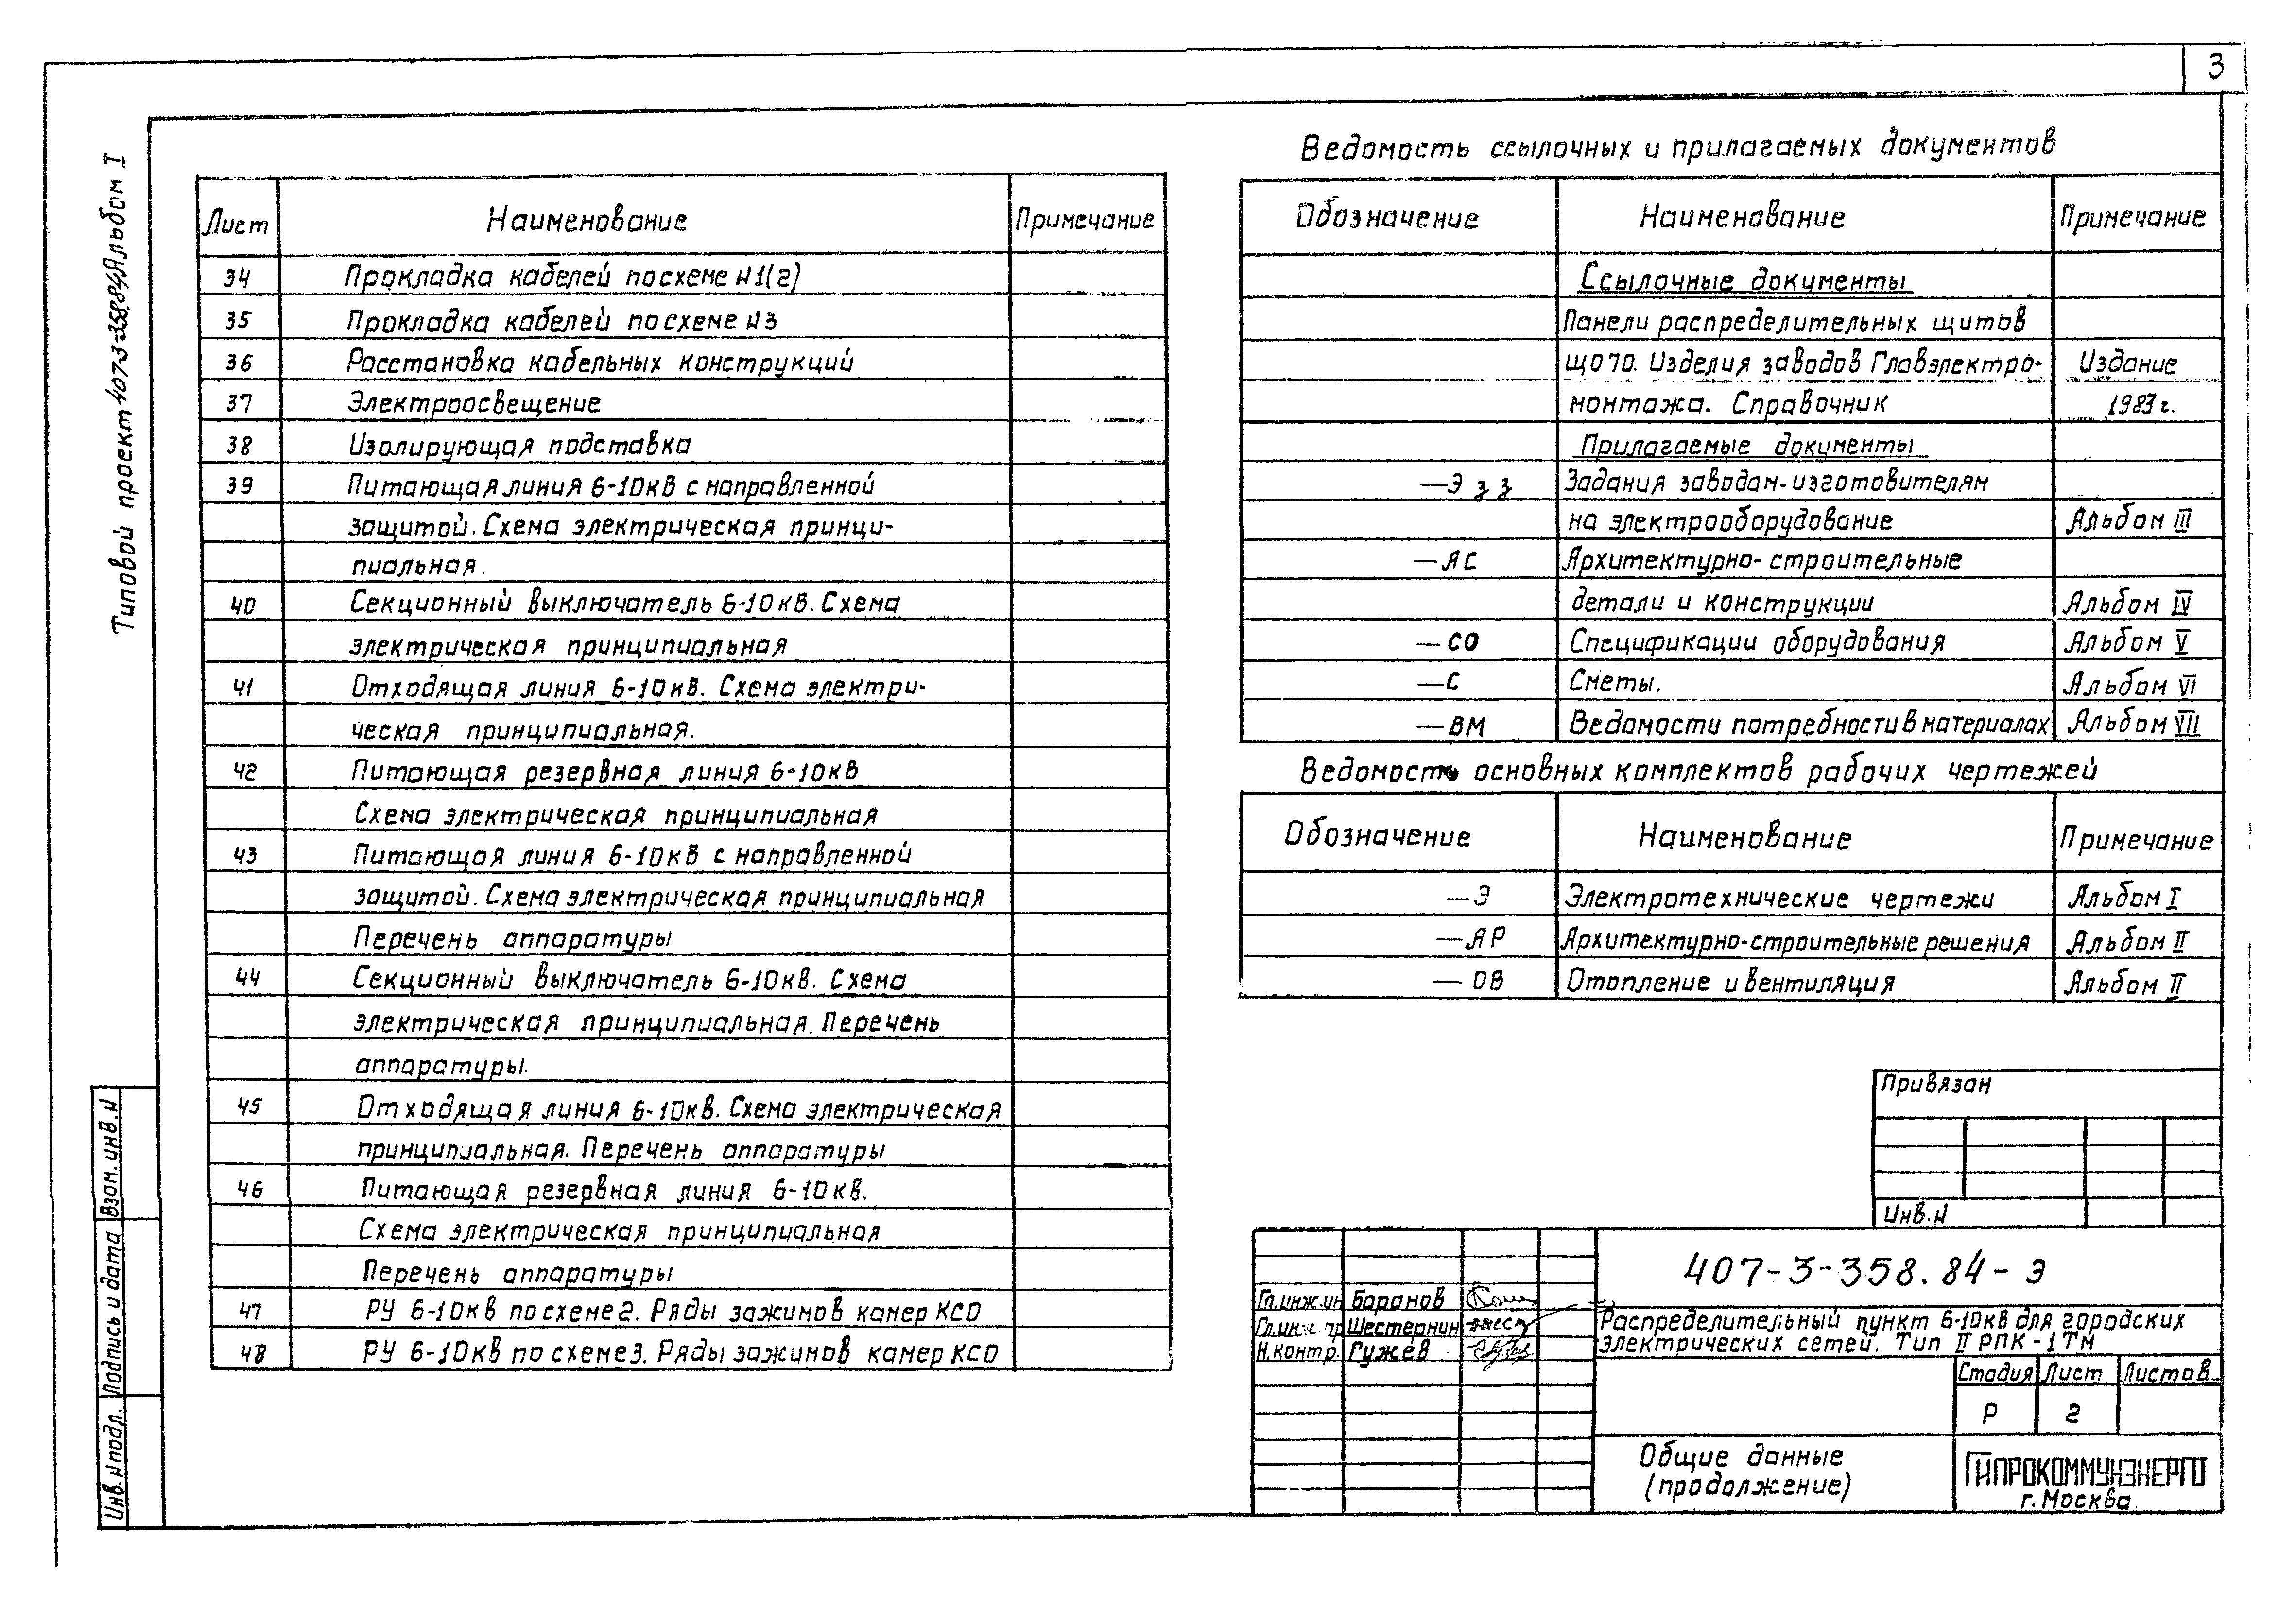 3
Типовой проект 407-3-358.84 Альбом I
Лист Наименование Примечание
34 Прокладка кабелей по схеме N1(2)
35 Прокладка кабелей по схеме N3
36 Расстановка кабельных конструкций
37 Электроосвещение
38 Изолирующая подставка
39 Питающая линия 6-10кВ с направленной
защитой. Схема электрическая принци-
пиальная.
40 Секционный выключатель 6-10кВ. Схема
электрическая принципиальная
41 Отходящая линия 6-10кВ. Схема электри-
ческая принципиальная.
42 Питающая резервная линия 6-10кВ
Схема электрическая принципиальная
43 Питающая линия 6-10кВ с направленной
защитой. Схема электрическая принципиальная
Перечень аппаратуры
44 Секционный выключатель 6-10кВ. Схема
электрическая принципиальная. Перечень
аппаратуры.
45 Отходящая линия 6-10кВ. Схема электрическая
принципиальная. Перечень аппаратуры
46 Питающая резервная линия 6-10кВ.
Схема электрическая принципиальная
Перечень аппаратуры
47 РУ 6-10кВ по схеме 2. Ряды зажимов камер КСО
48 РУ 6-10кВ по схеме 3. Ряды зажимов камер КСО
Ведомость ссылочных и прилагаемых документов
Обозначение Наименование Примечание
Ссылочные документы
Панели распределительных щитов
ЩО70. Изделия заводов Главэлектро- Издание
монтажа. Справочник 1983г.
Прилагаемые документы
—Э з з Задания заводам-изготовителям
на электрооборудование Альбом III
—АС Архитектурно-строительные
детали и конструкции Альбом IV
—СО Спецификации оборудования Альбом V
—С Сметы. Альбом VI
—ВМ Ведомости потребности в материалах Альбом VII
Ведомость основных комплектов рабочих чертежей
Обозначение Наименование Примечание
—Э Электротехнические чертежи Альбом I
—АР Архитектурно-строительные решения Альбом II
—ОВ Отопление и вентиляция Альбом II
Привязан
Инв. N
407-3-358.84-Э
Гл.инж.ин Баранов
Гл.инж.пр Шестернин
Н.контр. Гужев
Распределительный пункт 6-10кВ для городских
электрических сетей. Тип II РПК-1ТМ
Стадия Лист Листов
Р 2
Общие данные
(продолжение)
ГИПРОКОММУНЭНЕРГО
г. Москва
Взам. инв. N
Подпись и дата
Инв. N подл.